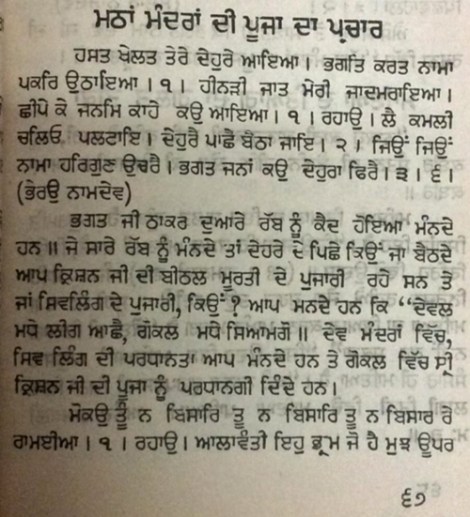 ਮਠਾਂ ਮੰਦਰਾਂ ਦੀ ਪੂਜਾ ਦਾ ਪ੍ਰਚਾਰ
ਹਸਤ ਖੇਲਤ ਤੇਰੇ ਦੇਹੁਰੇ ਆਇਆ। ਭਗਤਿ ਕਰਤ ਨਾਮਾ
ਪਕਰਿ ਉਠਾਇਆ। ੧। ਹੀਨੜੀ ਜਾਤ ਮੇਰੀ ਜਾਦਮਰਾਇਆ।
ਛੀਪੇ ਕੇ ਜਨਮਿ ਕਾਹੇ ਕਉ ਆਇਆ। ੧। ਰਹਾਉ। ਲੈ ਕਮਲੀ
ਚਲਿਓ ਪਲਟਾਇ। ਦੇਹੁਰੈ ਪਾਛੈ ਬੈਠਾ ਜਾਇ। ੨। ਜਿਉਂ ਜਿਉਂ
ਨਾਮਾ ਹਰਿਗੁਣ ਉਚਰੈ। ਭਗਤ ਜਨਾਂ ਕਉ ਦੇਹੁਰਾ ਫਿਰੈ। ੩। ੬।
(ਭੇਰਉ ਨਾਮਦੇਵ)
ਭਗਤ ਜੀ ਠਾਕਰ ਦੁਆਰੇ ਰੱਬ ਨੂੰ ਕੈਦ ਹੋਇਆ ਮੰਨਦੇ
ਹਨ॥ ਜੇ ਸਾਰੇ ਰੱਬ ਨੂੰ ਮੰਨਦੇ ਤਾਂ ਦੇਹਰੇ ਦੇ ਪਿਛੇ ਕਿਉਂ ਜਾ ਬੈਠਦੇ
ਆਪ ਕ੍ਰਿਸ਼ਨ ਜੀ ਦੀ ਬੀਠਲ ਮੂਰਤੀ ਦੇ ਪੁਜਾਰੀ ਰਹੇ ਸਨ ਤੇ
ਜਾਂ ਸਿਵਲਿੰਗ ਦੇ ਪੁਜਾਰੀ, ਕਿਉਂ? ਆਪ ਮਨਦੇ ਹਨ ਕਿ “ਦੇਵਲ
ਮਧੇ ਲੀਗ ਆਛੈ, ਗੋਕਲ ਮਧੇ ਸਿਆਮਗੋ॥ ਦੇਵ ਮੰਦਰਾਂ ਵਿੱਚ,
ਸਿਵ ਲਿੰਗ ਦੀ ਪਰਧਾਨਤਾ ਆਪ ਮੰਨਦੇ ਹਨ ਤੇ ਗੋਕਲ ਵਿੱਚ ਸ੍ਰੀ
ਕ੍ਰਿਸ਼ਨ ਜੀ ਦੀ ਪੂਜਾ ਨੂੰ ਪਰਧਾਨਗੀ ਦਿੰਦੇ ਹਨ।
ਮੋਕਉ ਤੂੰ ਨ ਬਿਸਾਰਿ ਤੂ ਨ ਬਿਸਾਰਿ ਤੂ ਨ ਬਿਸਾਰ ਰੇ
ਰਾਮਈਆ। ੧। ਰਹਾਉ। ਆਲਾਵੰਤੀ ਇਹੁ ਭ੍ਰਮ ਜੋ ਹੈ ਮੁਝ ਊਪਰ
੬੭